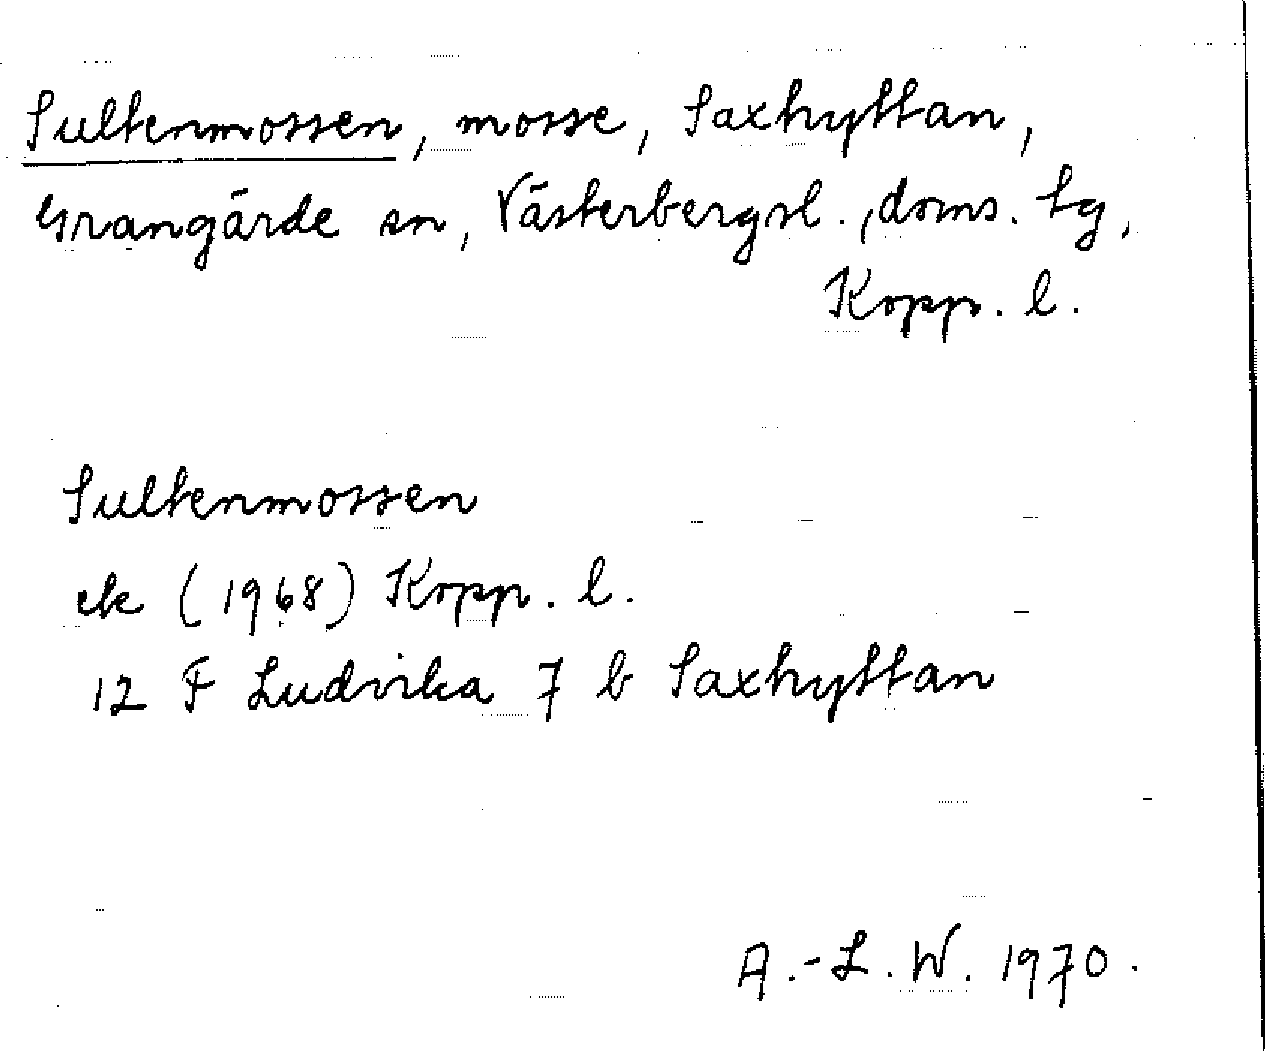 Sultenmossen, mosse, Saxhyttan,
Grangärde sn, Västerbergsl., doms. tg,
Kopp. l.
Sultenmossen
ek (1968) Kopp. l.
12 F Ludvika 7 b Saxhyttan
A.-L. W. 1970.